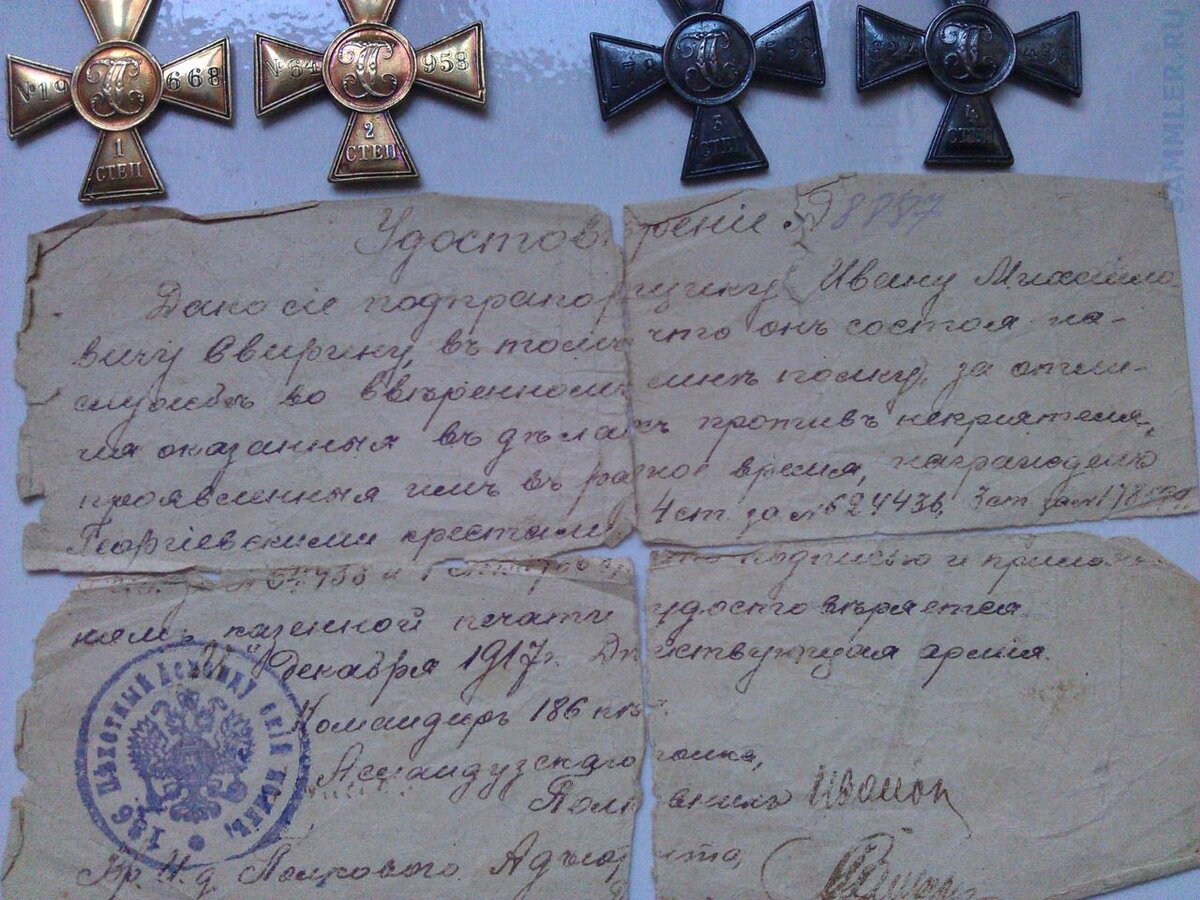 №19 668
1
СТЕП
№64 958
2
СТЕП
178 599
3
СТЕП
624 436
4
СТЕП
SAMMLER.RU
Удостоверенiе № 8887
Дано сiе подпрапорщику Ивану Михайло-
вичу Свирину, въ томъ что онъ состоя на
службѣ во ввѣренномъ мнѣ полку, за отли-
чiя оказанныя въ дѣлахъ противъ непрiятеля,
проявленныя имъ въ разное время, награжденъ
Георгiевскими крестами 4 ст. за №624436, 3 ст. за №178599
подписью и приложе-
нiемъ казенной печати удостовѣряется.
Декабря 1917 г. Дѣйствующая армiя.
Командиръ 186 пѣх.
Асландузскаго полка,
Полковникъ
Вр. И. д. Полкового Адъютанта,
186 ПѢХОТНЫЙ АСЛАНДУЗСКIЙ ПОЛКЪ